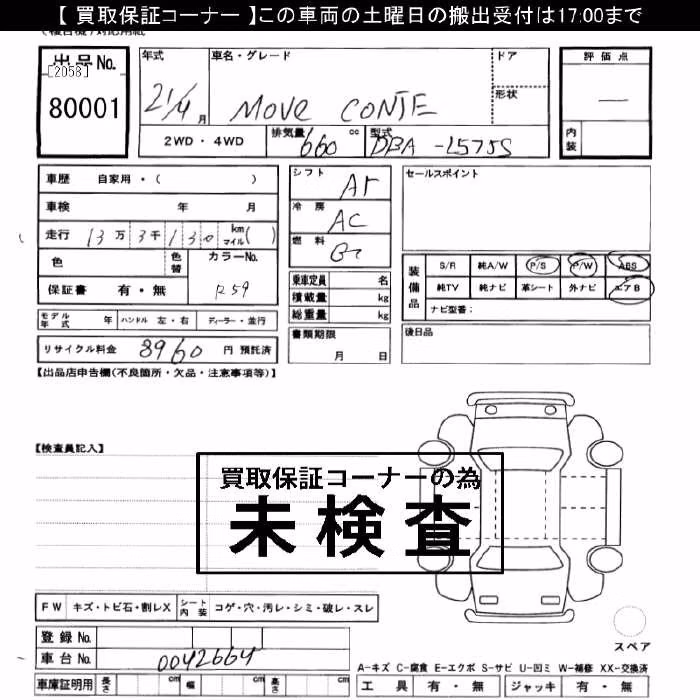 【 買取保証コーナー 】この車両の土曜日の搬出受付は17:00まで
出品No.
[2058]
80001
年式
21/4 月
車名・グレード
MOVE CONTE
ドア
形状
評価点
—
内装
2WD・4WD
排気量 660 cc
型式 DBA-L575S
車歴 自家用・( )
車検 年 月
走行 13万3千130 km マイル( )
色
色替
カラーNo.
R59
保証書 有・無
シフト AT
冷房 AC
燃料
乗車定員 名
積載量 kg
総重量 kg
セールスポイント
装備品
S/R 純A/W P/S P/W ABS
純TV 純ナビ 革シート 外ナビ エアB
ナビ型番:
モデル年式 年 ハンドル 左・右 ディーラー・並行
書類期限
月 日
後日品
リサイクル料金 8960 円 預託済
【出品店申告欄(不良箇所・欠品・注意事項等)】
【検査員記入】
買取保証コーナーの為
未検査
FW キズ・トビ石・割レX
シート内装 コゲ・穴・汚レ・シミ・破レ・スレ
登録No.
車台No. 0042664
スペア
A-キズ C-腐食 E-エクボ S-サビ U-凹ミ W-補修 XX-交換済
車庫証明用 長さ cm 幅 cm 高さ cm
工具 有・無 ジャッキ 有・無